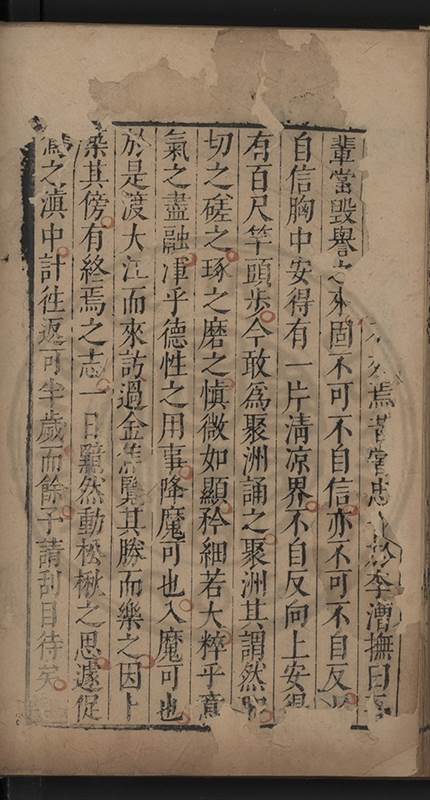 焉者當忠李漕撫曰
輩當毀譽之來固不可不自信亦不可不自反
自信胸中安得有一片清凉界不自反向上安得
有百尺竿頭步今敢爲聚洲誦之聚洲其謂然
切之磋之琢之磨之慎微如顯矜細若大粹乎意
氣之盡融渾乎德性之用事降魔可也入魔可也
於是渡大江而來訪過金焦覽其勝而樂之因卜
築其傍有終焉之志一日黯然動松楸之思遽促
之滇中計往返可半歲而餘予請刮目待矣